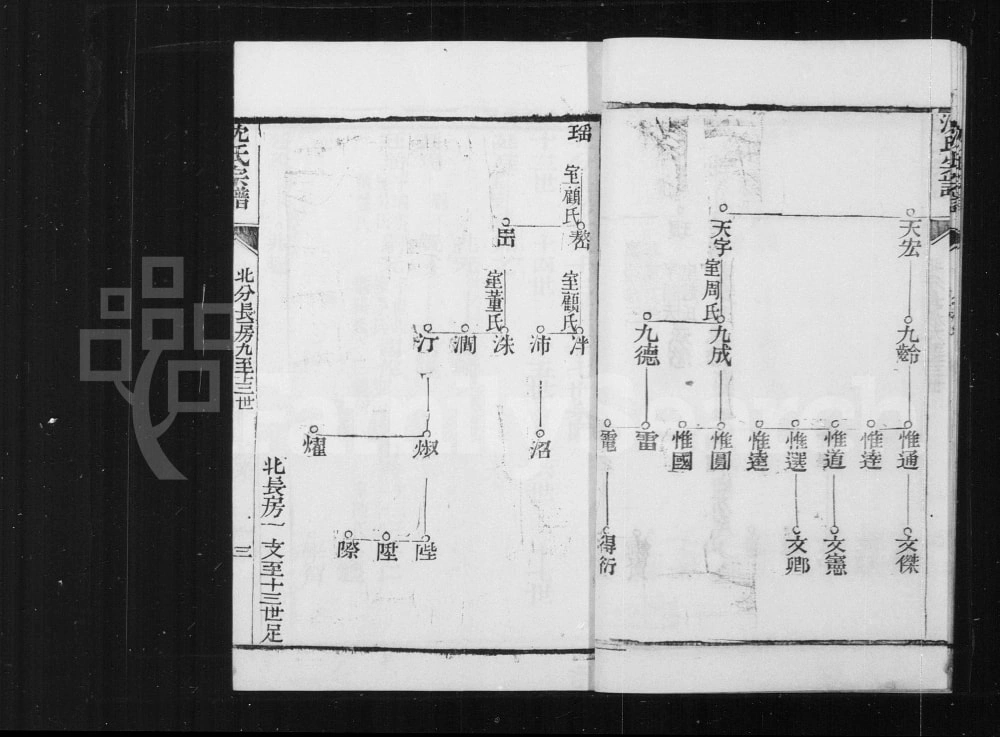 天宏
天宇
室周氏
九齡
九成
九德
惟通
惟逵
惟道
惟選
惟遠
惟圓
惟國
雷
電
文傑
文憲
文卿
得衍
瑶
室顧氏
嵒
室顧氏
室董氏
泮
沛
洙
澗
汀
沼
燿
陛
陞
際
北長房一支至十三世足
沈氏宗譜
北分長房九至十三世
三
FamilySearch